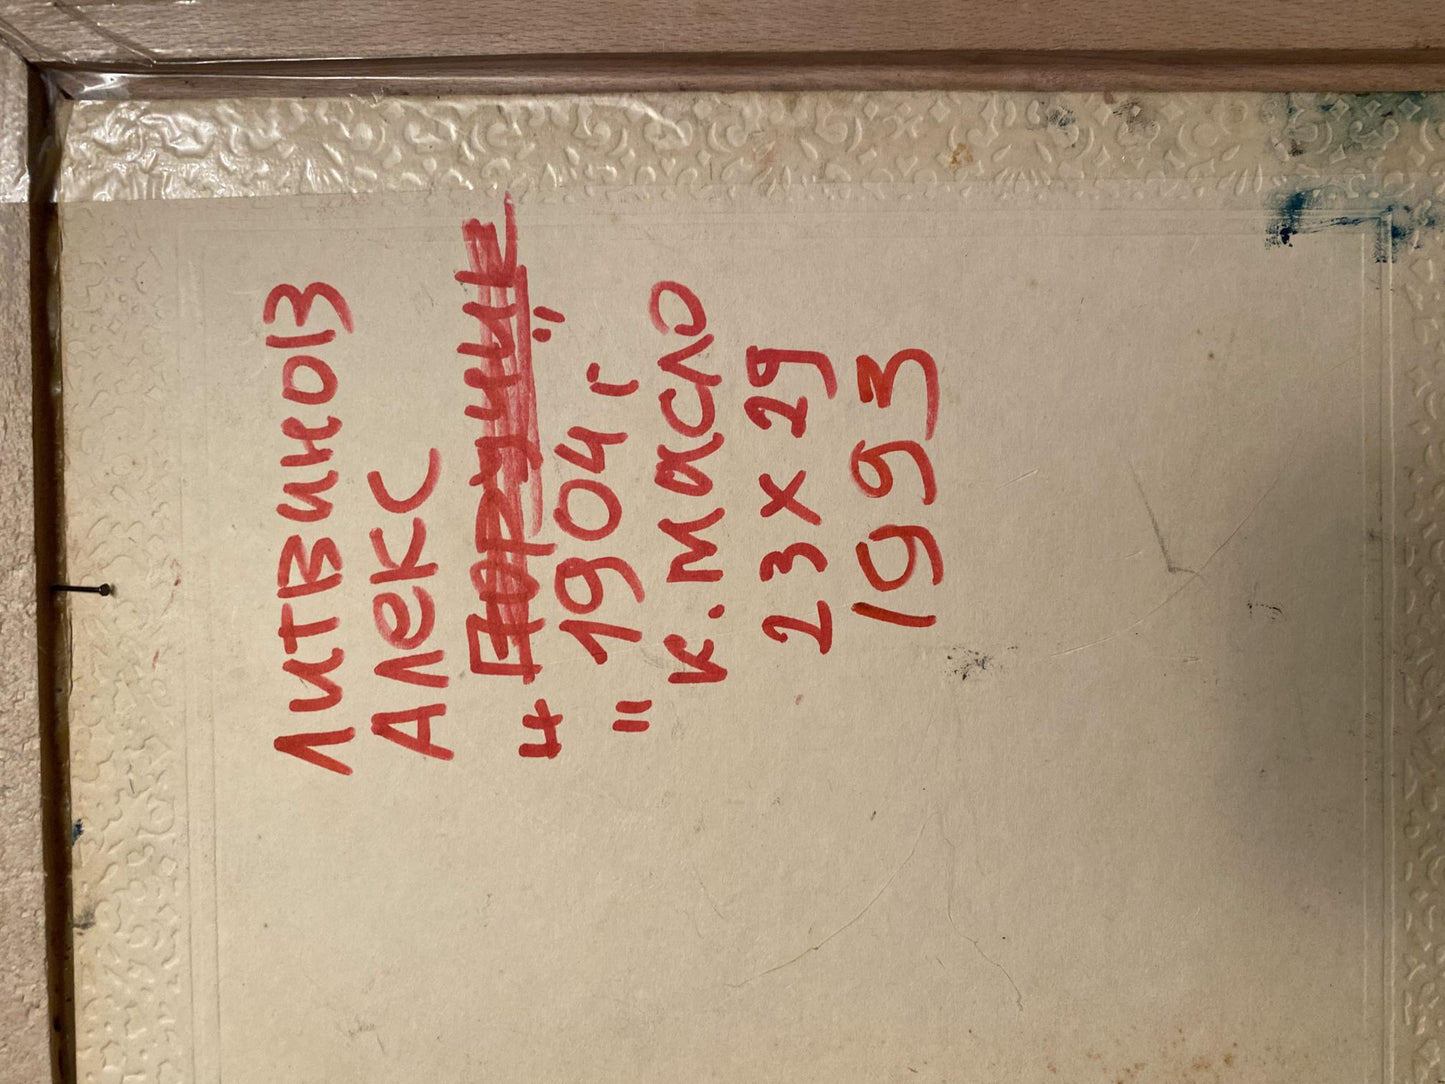 Литвинов
Алекс
"Поручик"
"1904 г
к. масло
23 x 29
1993